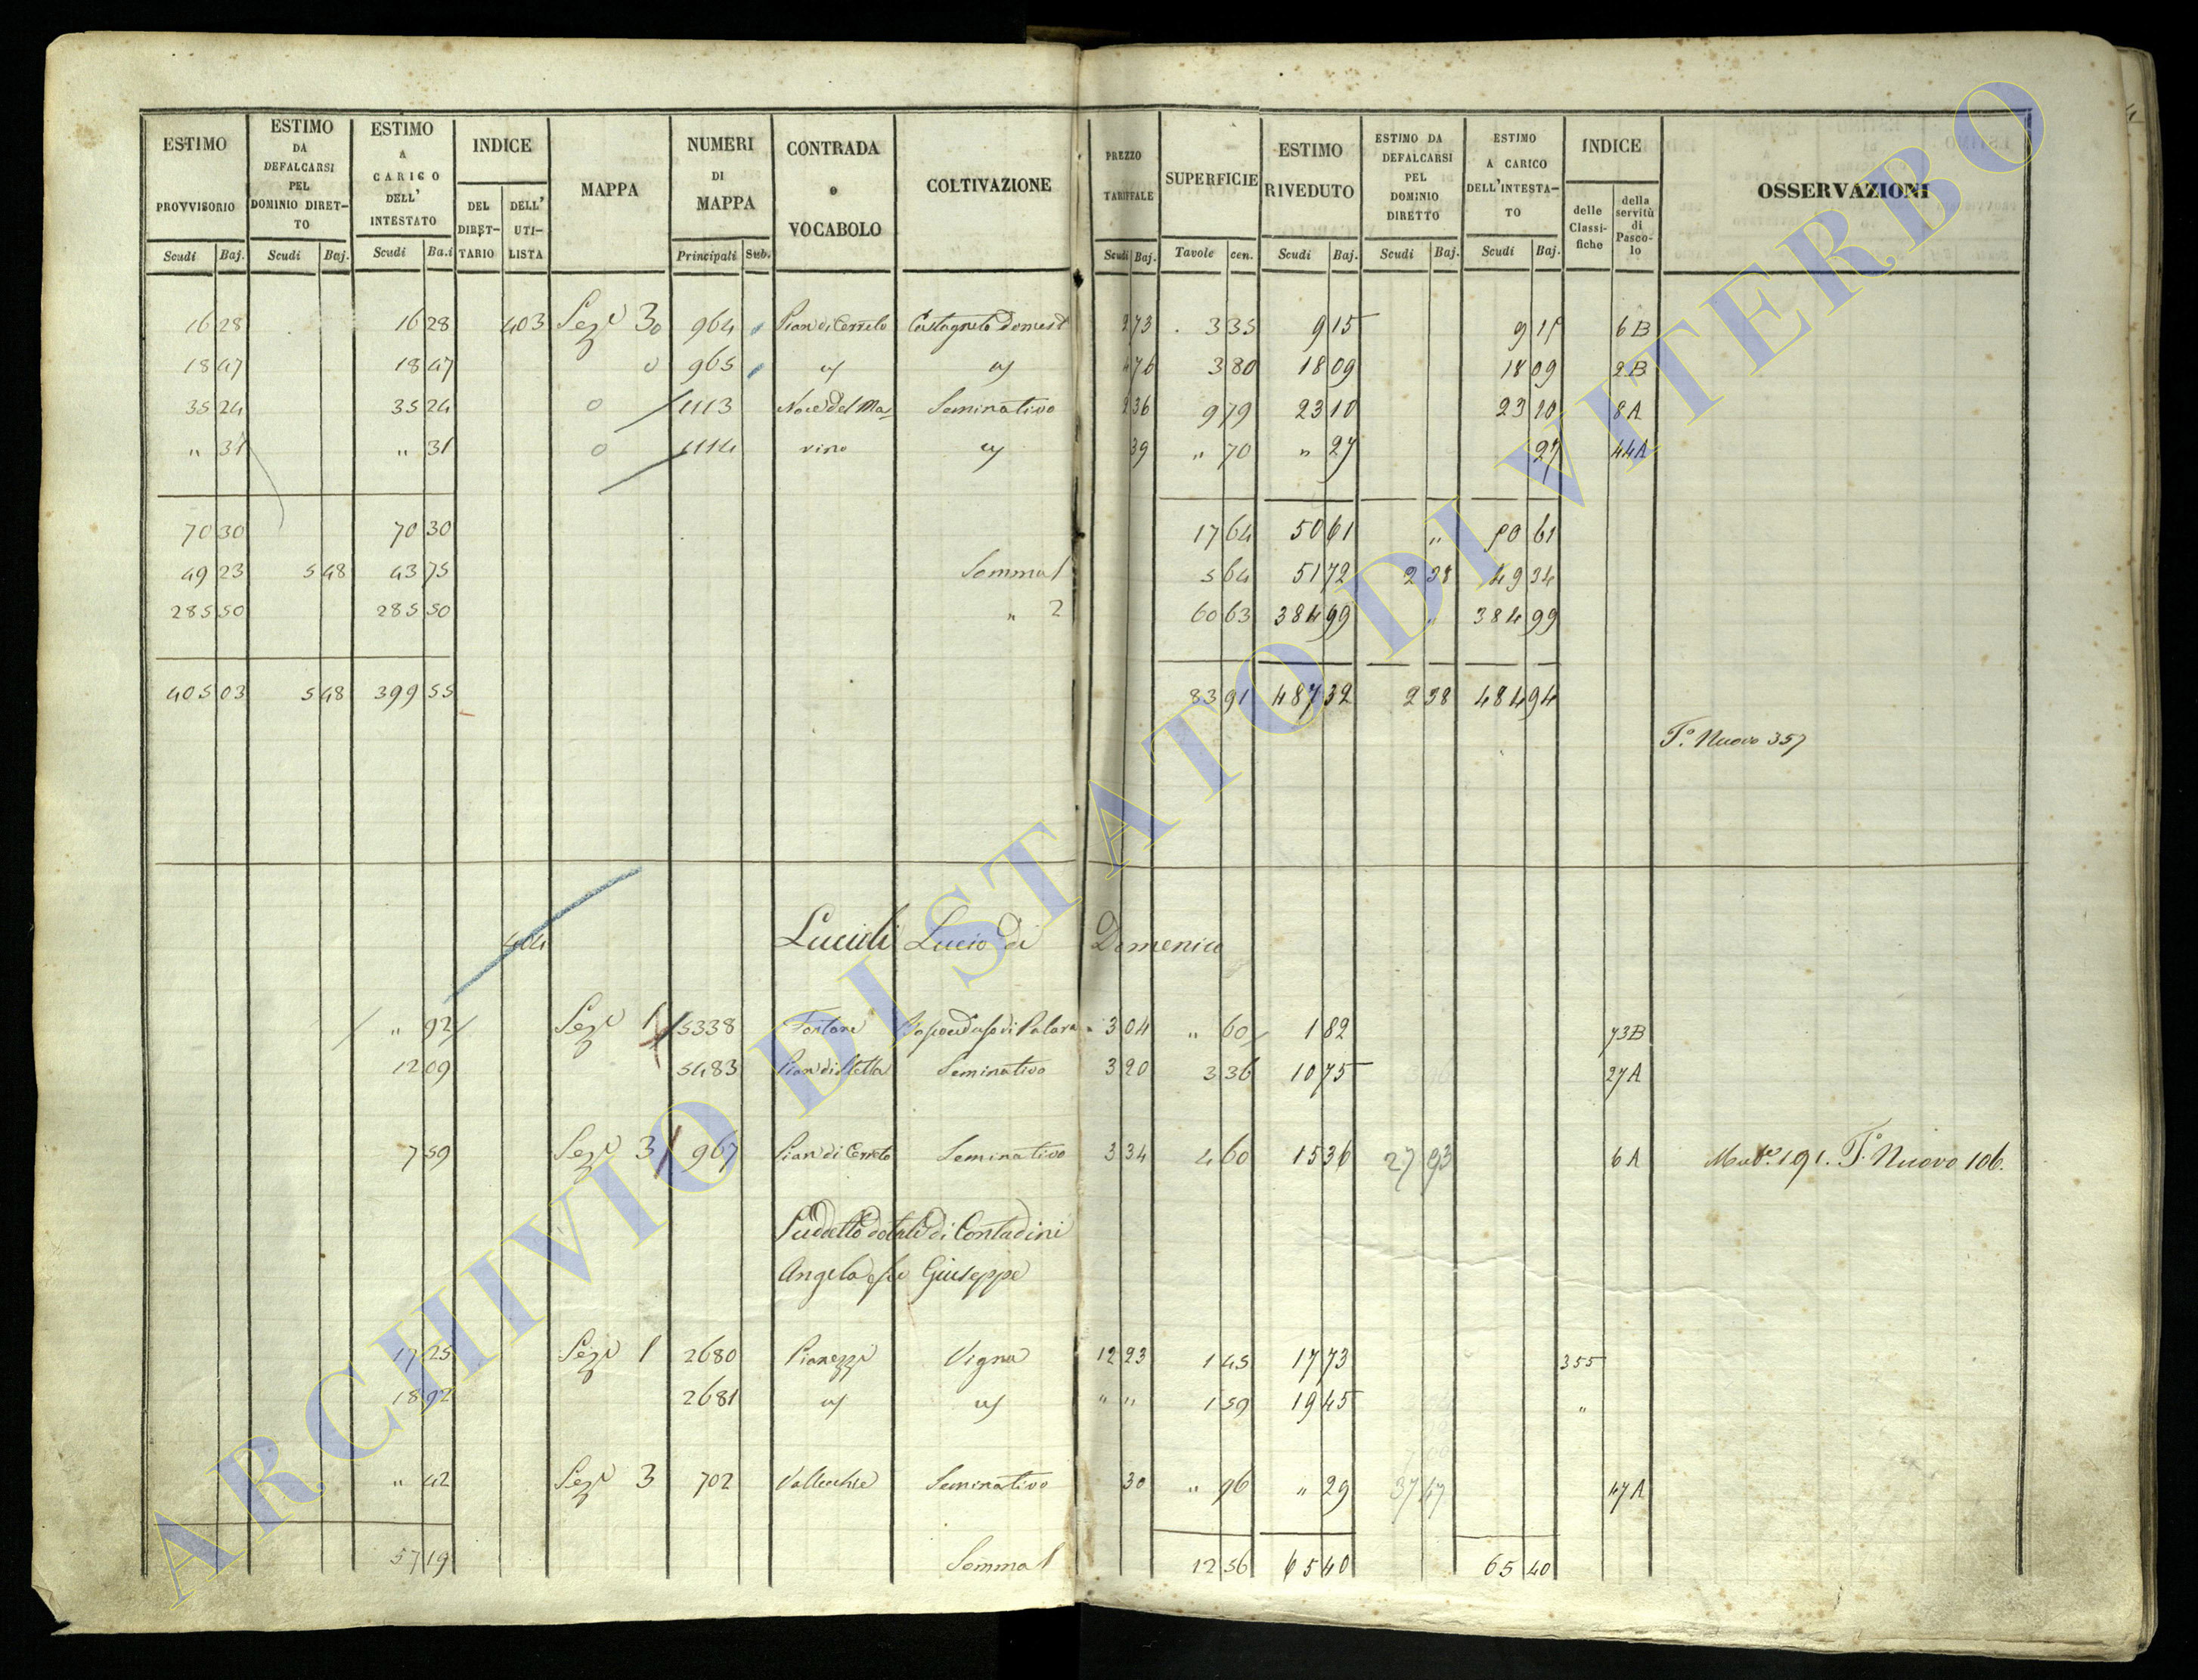 ESTIMO PROVVISORIO | ESTIMO DA DEFALCARSI PEL DOMINIO DIRETTO | ESTIMO A CARICO DELL' INTESTATO | INDICE | MAPPA | NUMERI DI MAPPA | CONTRADA o VOCABOLO | COLTIVAZIONE | PREZZO TARIFFALE | SUPERFICIE | ESTIMO RIVEDUTO | ESTIMO DA DEFALCARSI PEL DOMINIO DIRETTO | ESTIMO A CARICO DELL'INTESTATO | INDICE | OSSERVAZIONI
DEL DIRETTARIO | DELL' UTILISTA | delle Classifiche | della servitù di Pascolo
Scudi Baj. | Scudi Baj. | Scudi Ba.i | Principali Sub. | Scudi Baj. | Tavole cen. | Scudi Baj. | Scudi Baj. | Scudi Baj.
16 28 | 16 28 | 403 | Sezе 3 o | 964 | Pian di Cerreto | Castagneto Domest | 2 73 | 3 35 | 9 15 | 9 15 | 6 B
18 47 | 18 47 | o | 965 | | | 4 76 | 3 80 | 18 09 | 18 09 | 2 B
35 24 | 35 24 | o | 1113 | Noce del Ma- | Seminativo | 2 36 | 9 79 | 23 10 | 23 10 | 8 A
" 31 | " 31 | o | 1114 | vino | | 39 | " 70 | " 27 | 27 | 44 A
70 30 | 70 30 | 17 64 | 50 61 | " | 50 61
49 23 | 5 48 | 43 75 | Somma 1 | 5 64 | 51 72 | 2 38 | 49 34
285 50 | 285 50 | " 2 | 60 63 | 384 99 | " | 384 99
405 03 | 5 48 | 399 55 | 83 91 | 487 32 | 2 38 | 484 94
T.° Nuovo 357
404 | Lucioli Lucio di Domenico
" 92 | Seze 1 | 5338 | Bosco ad uso di Palara | 3 04 | " 60 | 1 82 | 73 B
12 09 | 5483 | Seminativo | 3 20 | 3 36 | 10 75 | 27 A
7 59 | Seze 3 | 967 | Pian di Cerreto | Seminativo | 3 34 | 4 60 | 15 36 | 27 93 | 6 A | 191. T.° Nuovo 106.
Sudetto dotale di Contadini
Angela fu Giuseppe
17 25 | Seze 1 | 2680 | Pianezze | Vigna | 12 23 | 1 45 | 17 73 | 355
18 92 | 2681 | | | " " | 1 59 | 19 45 | "
" 42 | Seze 3 | 702 | Vallecchie | Seminativo | 30 | " 96 | " 29 | 37 47 | 47 A
57 19 | Somma 1 | 12 56 | 65 40 | 65 40
ARCHIVIO DI STATO DI VITERBO